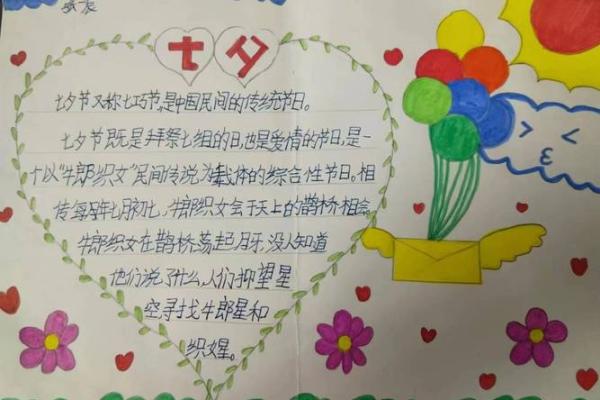 七夕
七夕节又称七巧节,是中国民间的传统节日。
七夕节既是拜祭七组的日,也是爱情的节日,是一
个以"牛郎织女"民间传说为载体的综合性节日。相
传每年七月初七,牛郎织女会于天上的鹊桥相会
牛郎织女在鹊桥荡起月牙,没人知道
他们说了什么,人们抑望星
空寻找牛郎星和
织女星。